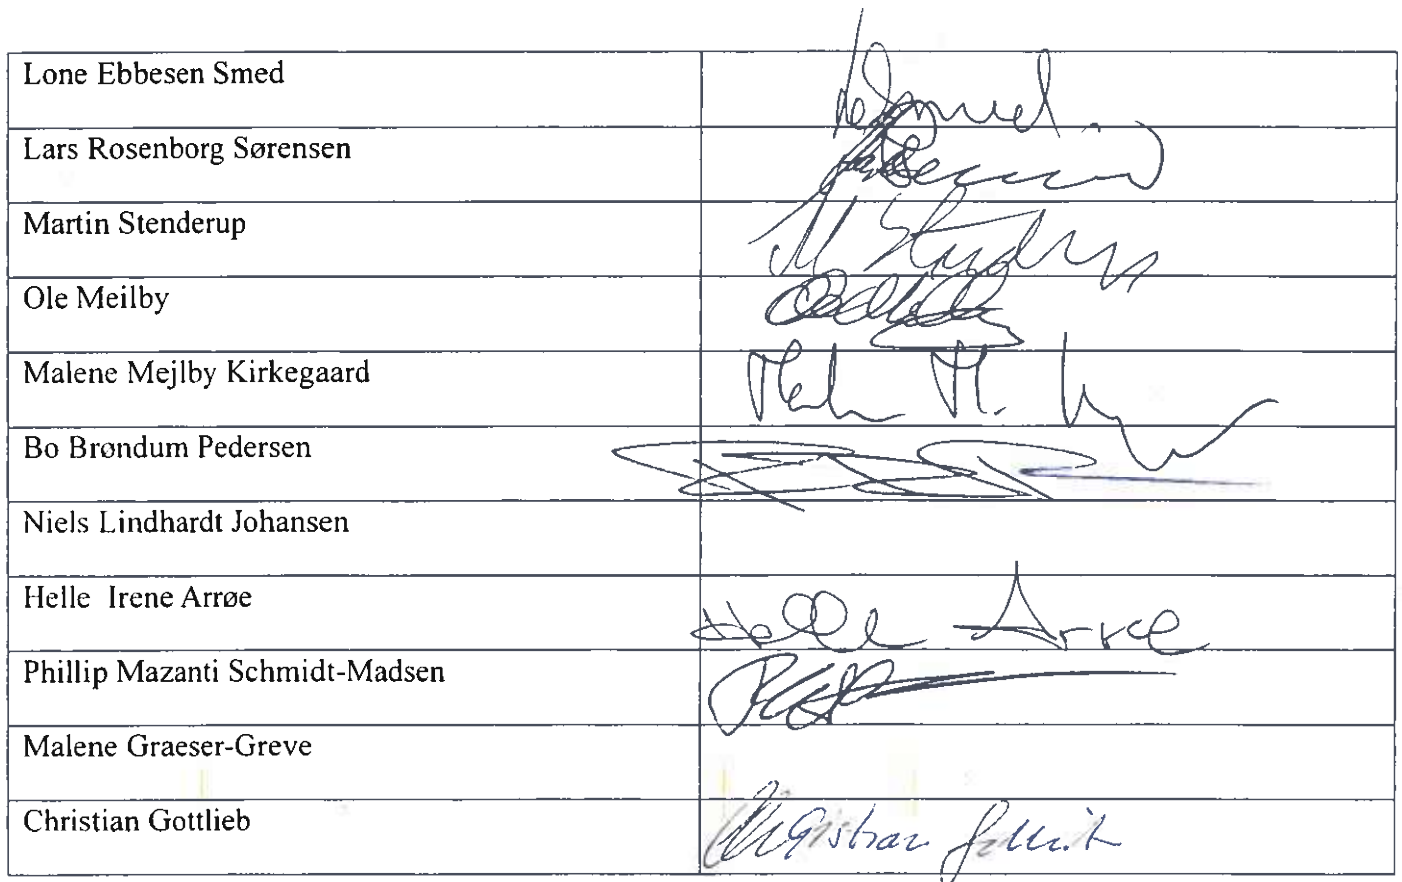 Lone Ebbesen Smed
Lars Rosenborg Sørensen
Martin Stenderup
Ole Meilby
Malene Mejlby Kirkegaard
Bo Brøndum Pedersen
Niels Lindhardt Johansen
Helle Irene Arrøe
Helle Arrøe
Phillip Mazanti Schmidt-Madsen
Malene Graeser-Greve
Christian Gottlieb
Christian Gottlieb